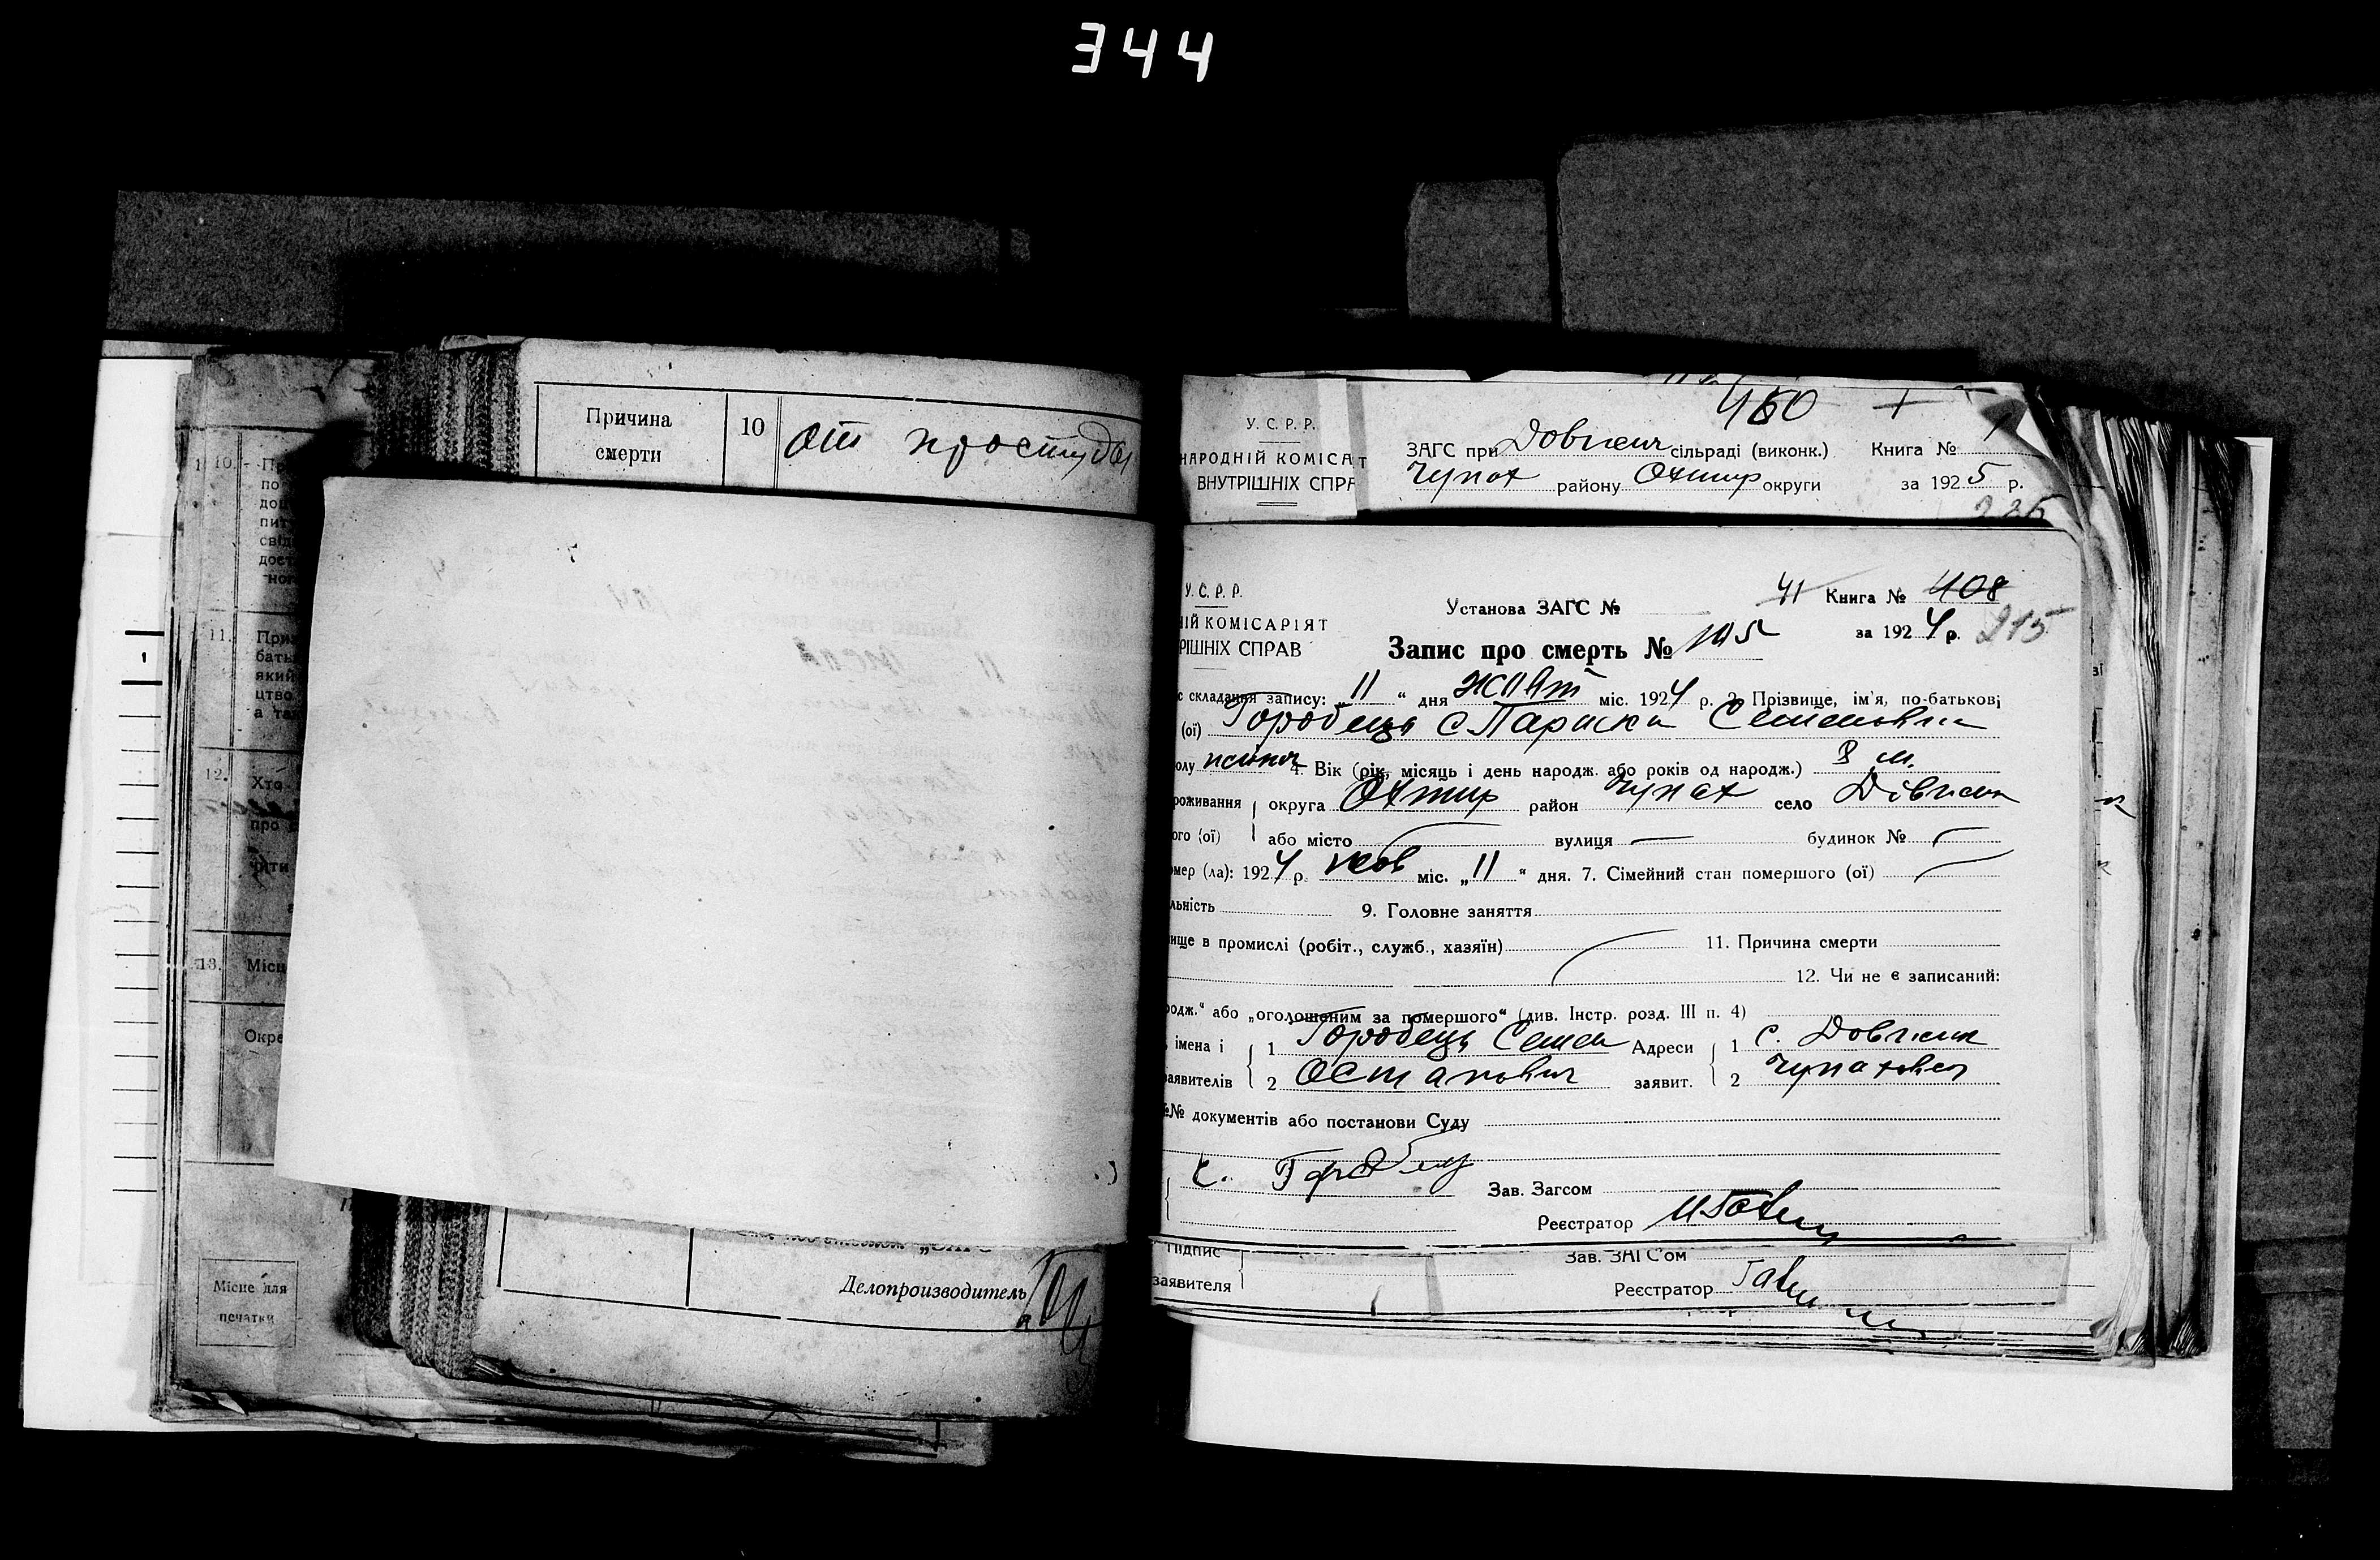 344
Причина
смерти
10
от простуды
10.
11.
12.
Хто
про
13.
Місце для
печатки
Делопроизводитель
У. С. Р. Р.
НАРОДНІЙ КОМІСАТ
ВНУТРІШНІХ СПРА
460
ЗАГС при Довжик сільраді (виконк.) Книга № 1
Чупах району Охтир округи за 1925 р.
У. С. Р. Р.
ІЙ КОМІСАРІЯТ
РІШНІХ СПРАВ
Установа ЗАГС № 41 Книга № 408
Запис про смерть № 105 за 1924 р. 215
с складання запису: „11“ дня Жовт міс. 1924 р. 2. Прізвище, ім'я, по-батькові
(ої) Городець Параска Семеновна
олу жіноч 4. Вік (рік, місяць і день народж. або років од народж.) 8 м.
роживання округа Охтир район Чупах село Довжик
ого (ої) або місто вулиця будинок №
мер (ла): 1924 р. жов міс. „11“ дня. 7. Сімейний стан помершого (ої)
льність 9. Головне заняття
ище в промислі (робіт., служб., хазяїн) 11. Причина смерти
12. Чи не є записаний:
родж.“ або „оголошеним за помершого“ (див. Інстр. розд. III п. 4)
імена і 1 Городець Семен Адреси 1 с. Довжик
аявителів 2 Остапович заявит. 2
№№ документів або постанови Суду
С. Городец
Зав. Загсом
Реєстратор
Підпис
заявителя
Зав. ЗАГС'ом
Реєстратор